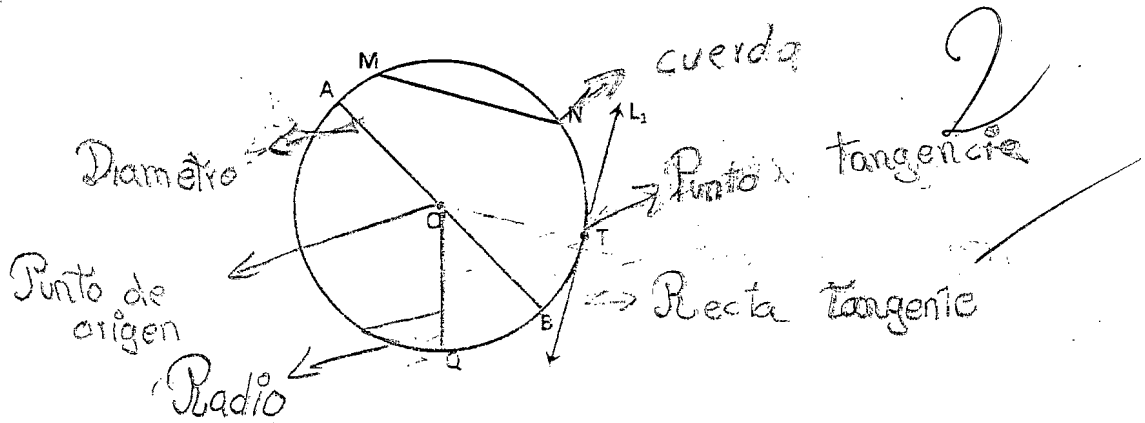 M
cuerda
2
A
N
L₁
Diametro
Punto tangencia
O
T
Punto de
origen
Recta Tangente
B
Q
Radio